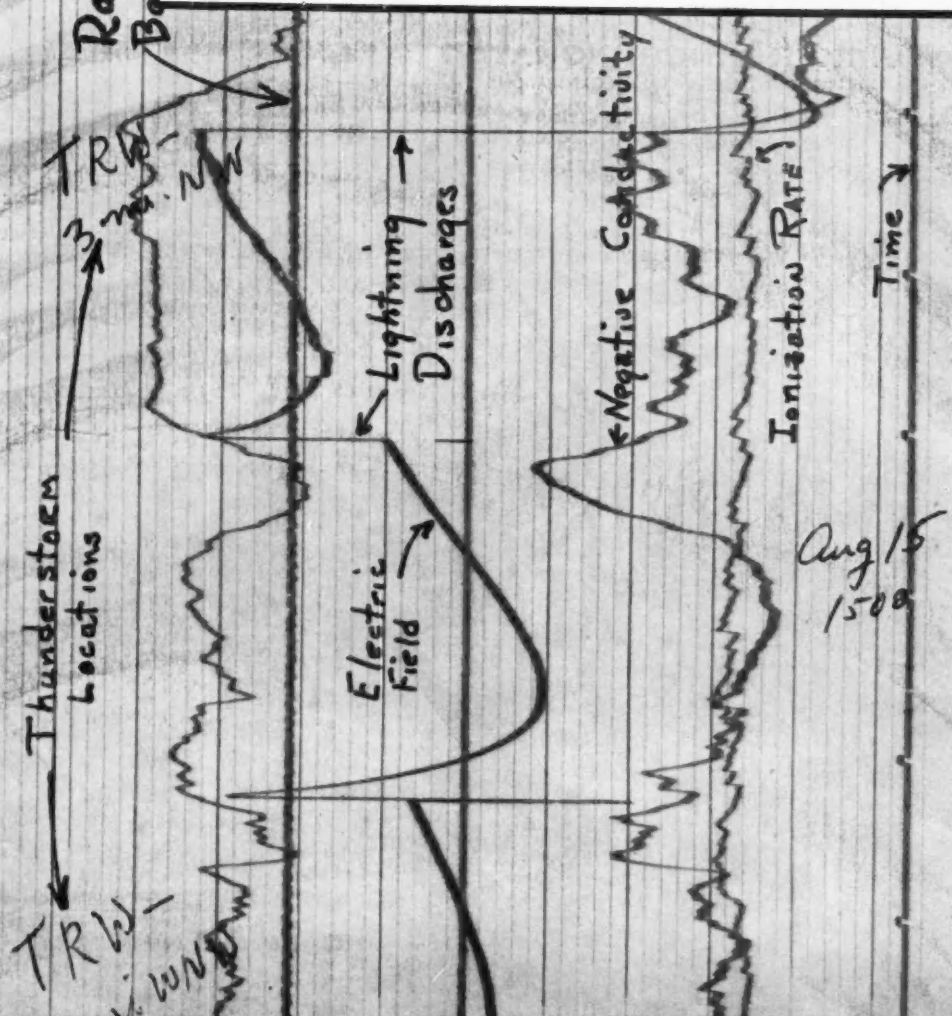 TRW-
3 mi. N
Thunderstorm
Locations
TRW-
WNW
Lightning
Discharges
Electric
Field
Negative Conductivity
Ionization Rate
Time
Aug 15
1500